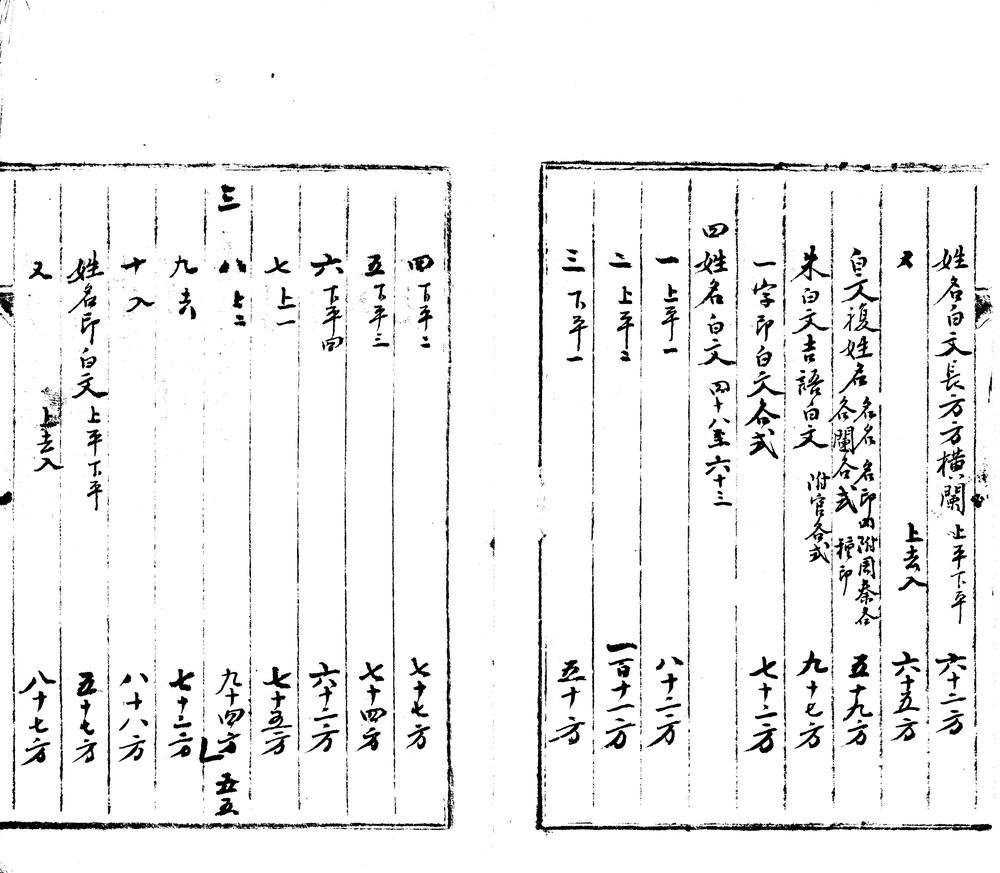 姓名白文長方方橫闌 上平下平 六十二方
又 上去入 六十五方
白文複姓名 名名 名印內附周秦各 各闌各式 種印 五十九方
朱白文吉語白文 附官各式 九十七方
一字印白文各式 七十二方
四姓名白文 四十八至六十三
一 上平一 八十二方
二 上平二 一百十一方
三 下平一 五十方
四 下平二 七十七方
五 下平三 七十四方
六 下平四 六十二方
七 上一 七十五方
三 八 上二 九十四方 五五
九 去 七十二方
十 入 八十八方
姓名印白文 上平下平 五十七方
又 上去入 八十七方